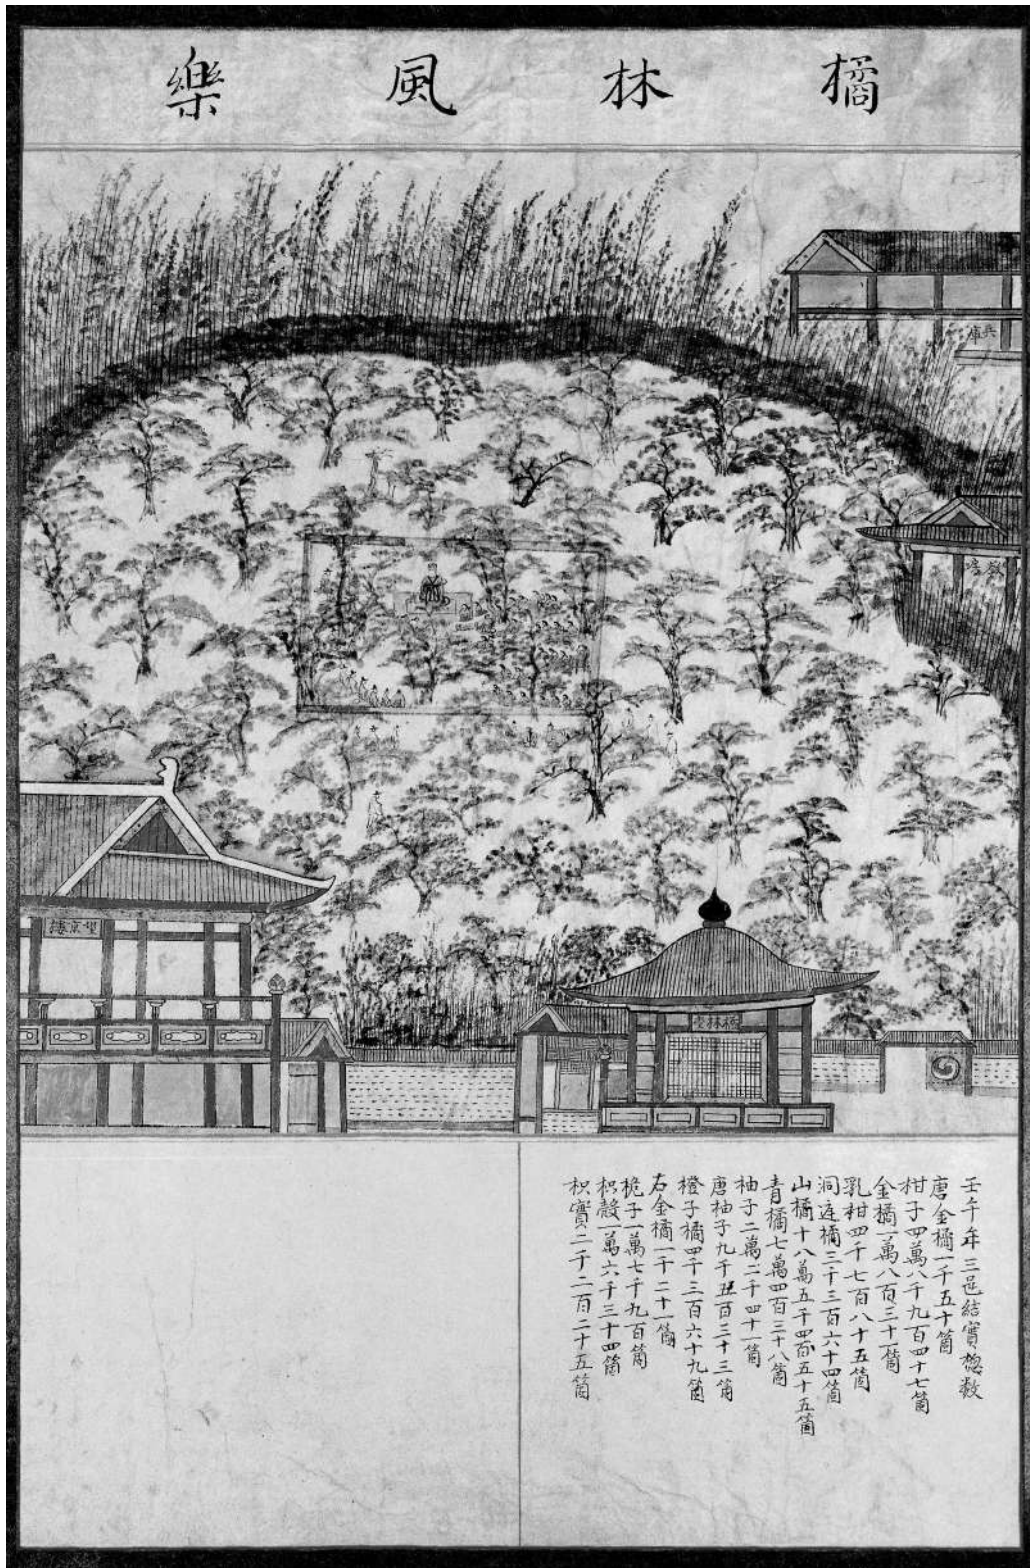 橘林風樂
兵庫
望京樓
橘林堂
壬午年三邑結實摠數
唐金橘一千五十箇
柑子四萬八千九百四十七箇
金橘一萬八百三十一箇
乳柑四千七百八十五箇
洞庭橘三千三百六十四箇
山橘十八萬五千四百五十五箇
青橘七萬四百三十八箇
柚子二萬二千四十一箇
唐柚子九千五百三十三箇
橙子橘四千三百六十九箇
右金橘一千二十一箇
梔子一萬七千九百箇
枳殼一萬六千三十四箇
枳實二千二百二十五箇